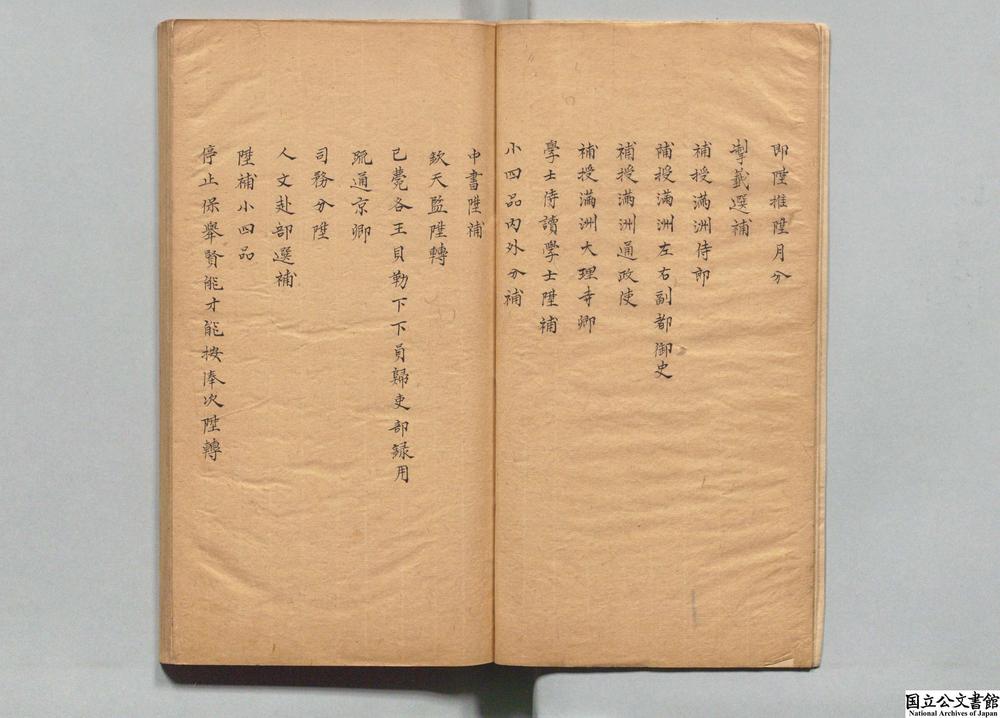 即陞推陞月分
掣籤選補
補授滿洲侍郎
補授滿洲左右副都御史
補授滿洲通政使
補授滿洲大理寺卿
學士侍讀學士陞補
小四品內外分補
中書陞補
欽天監陞轉
已薨各王貝勒下下員歸吏部録用
疏通京卿
司務分陞
人文赴部選補
陞補小四品
停止保舉賢能才能按俸次陞轉
国立公文書館
National Archives of Japan